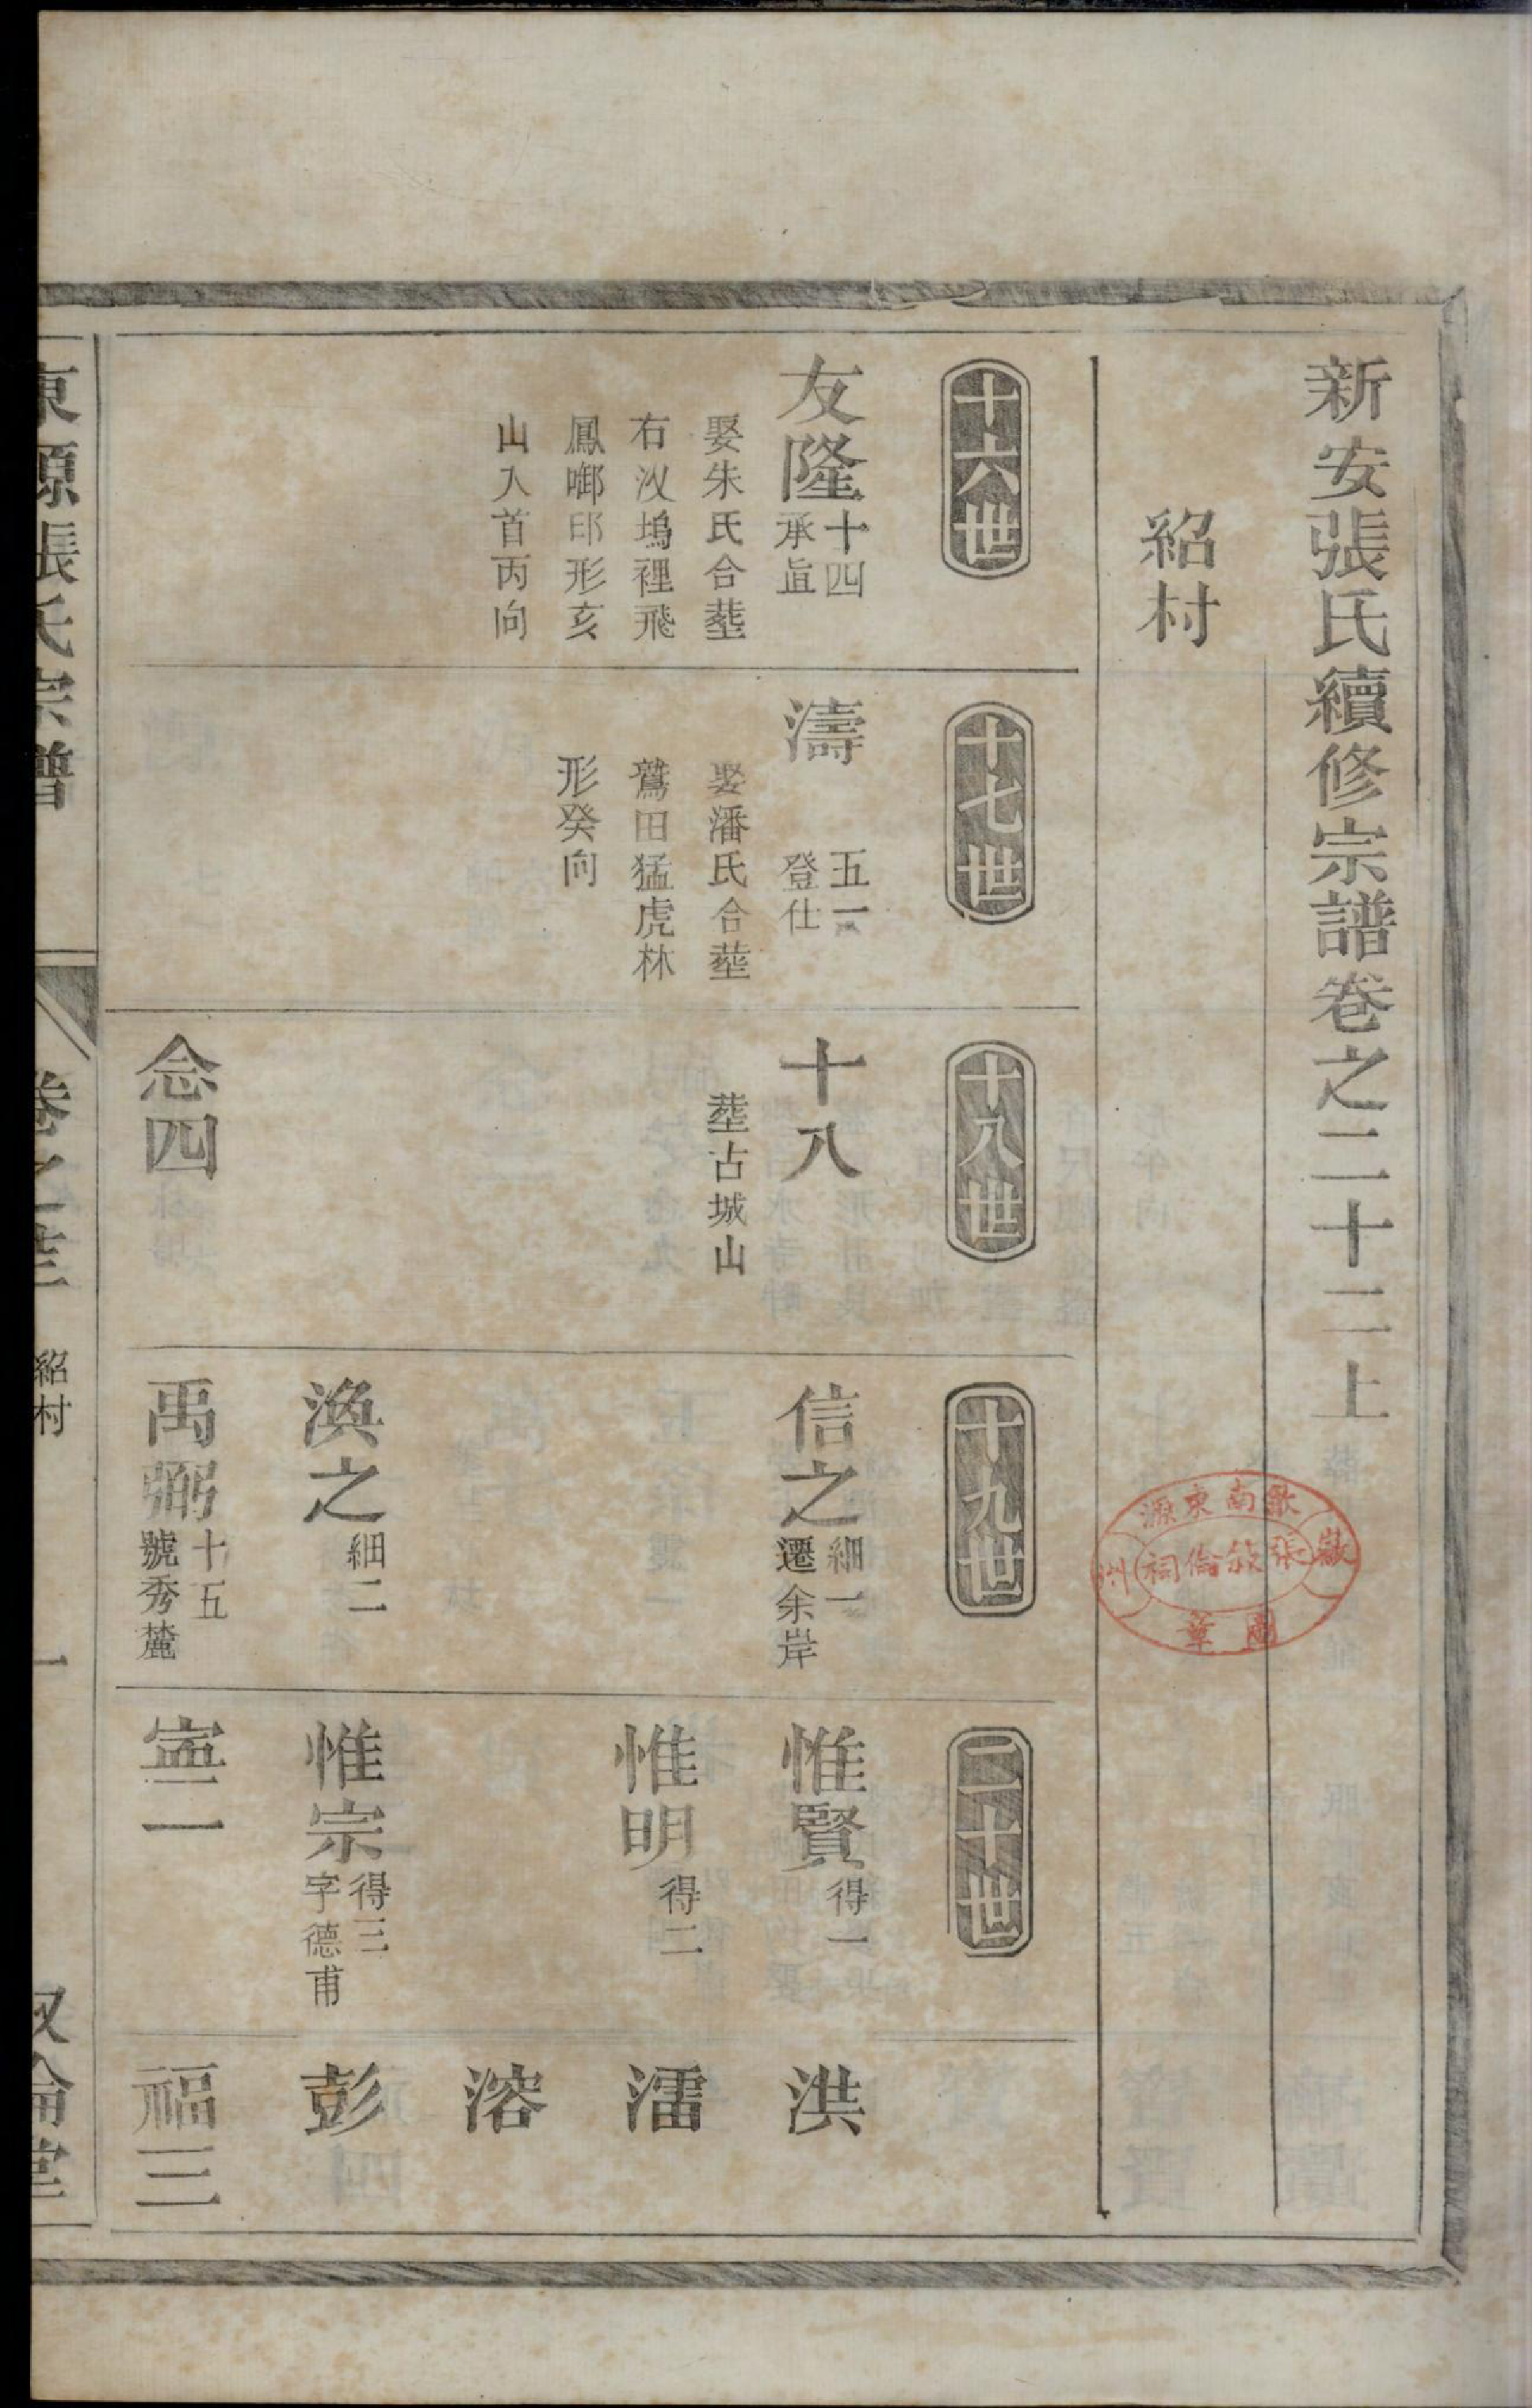 新安張氏續修宗譜卷之二十二上
紹村
十六世
友隆
十四
承直
娶朱氏合塟
右汊塢裡飛
鳳啣印形亥
山入首丙向
十七世
濤
五一
登仕
娶潘氏合塟
鵞田猛虎林
形癸向
十八世
十八
塟古城山
念四
十九世
信之
細一
遷余岸
渙之
細二
禹弼
十五
號秀麓
二十世
惟賢
得一
惟明
得二
惟宗
得三
字德甫
寧一
洪
澑
溶
彭
福三
東源張氏宗譜
卷之
紹村
一
叙倫堂
歙南東源
張敘倫祠
徽州
圖章